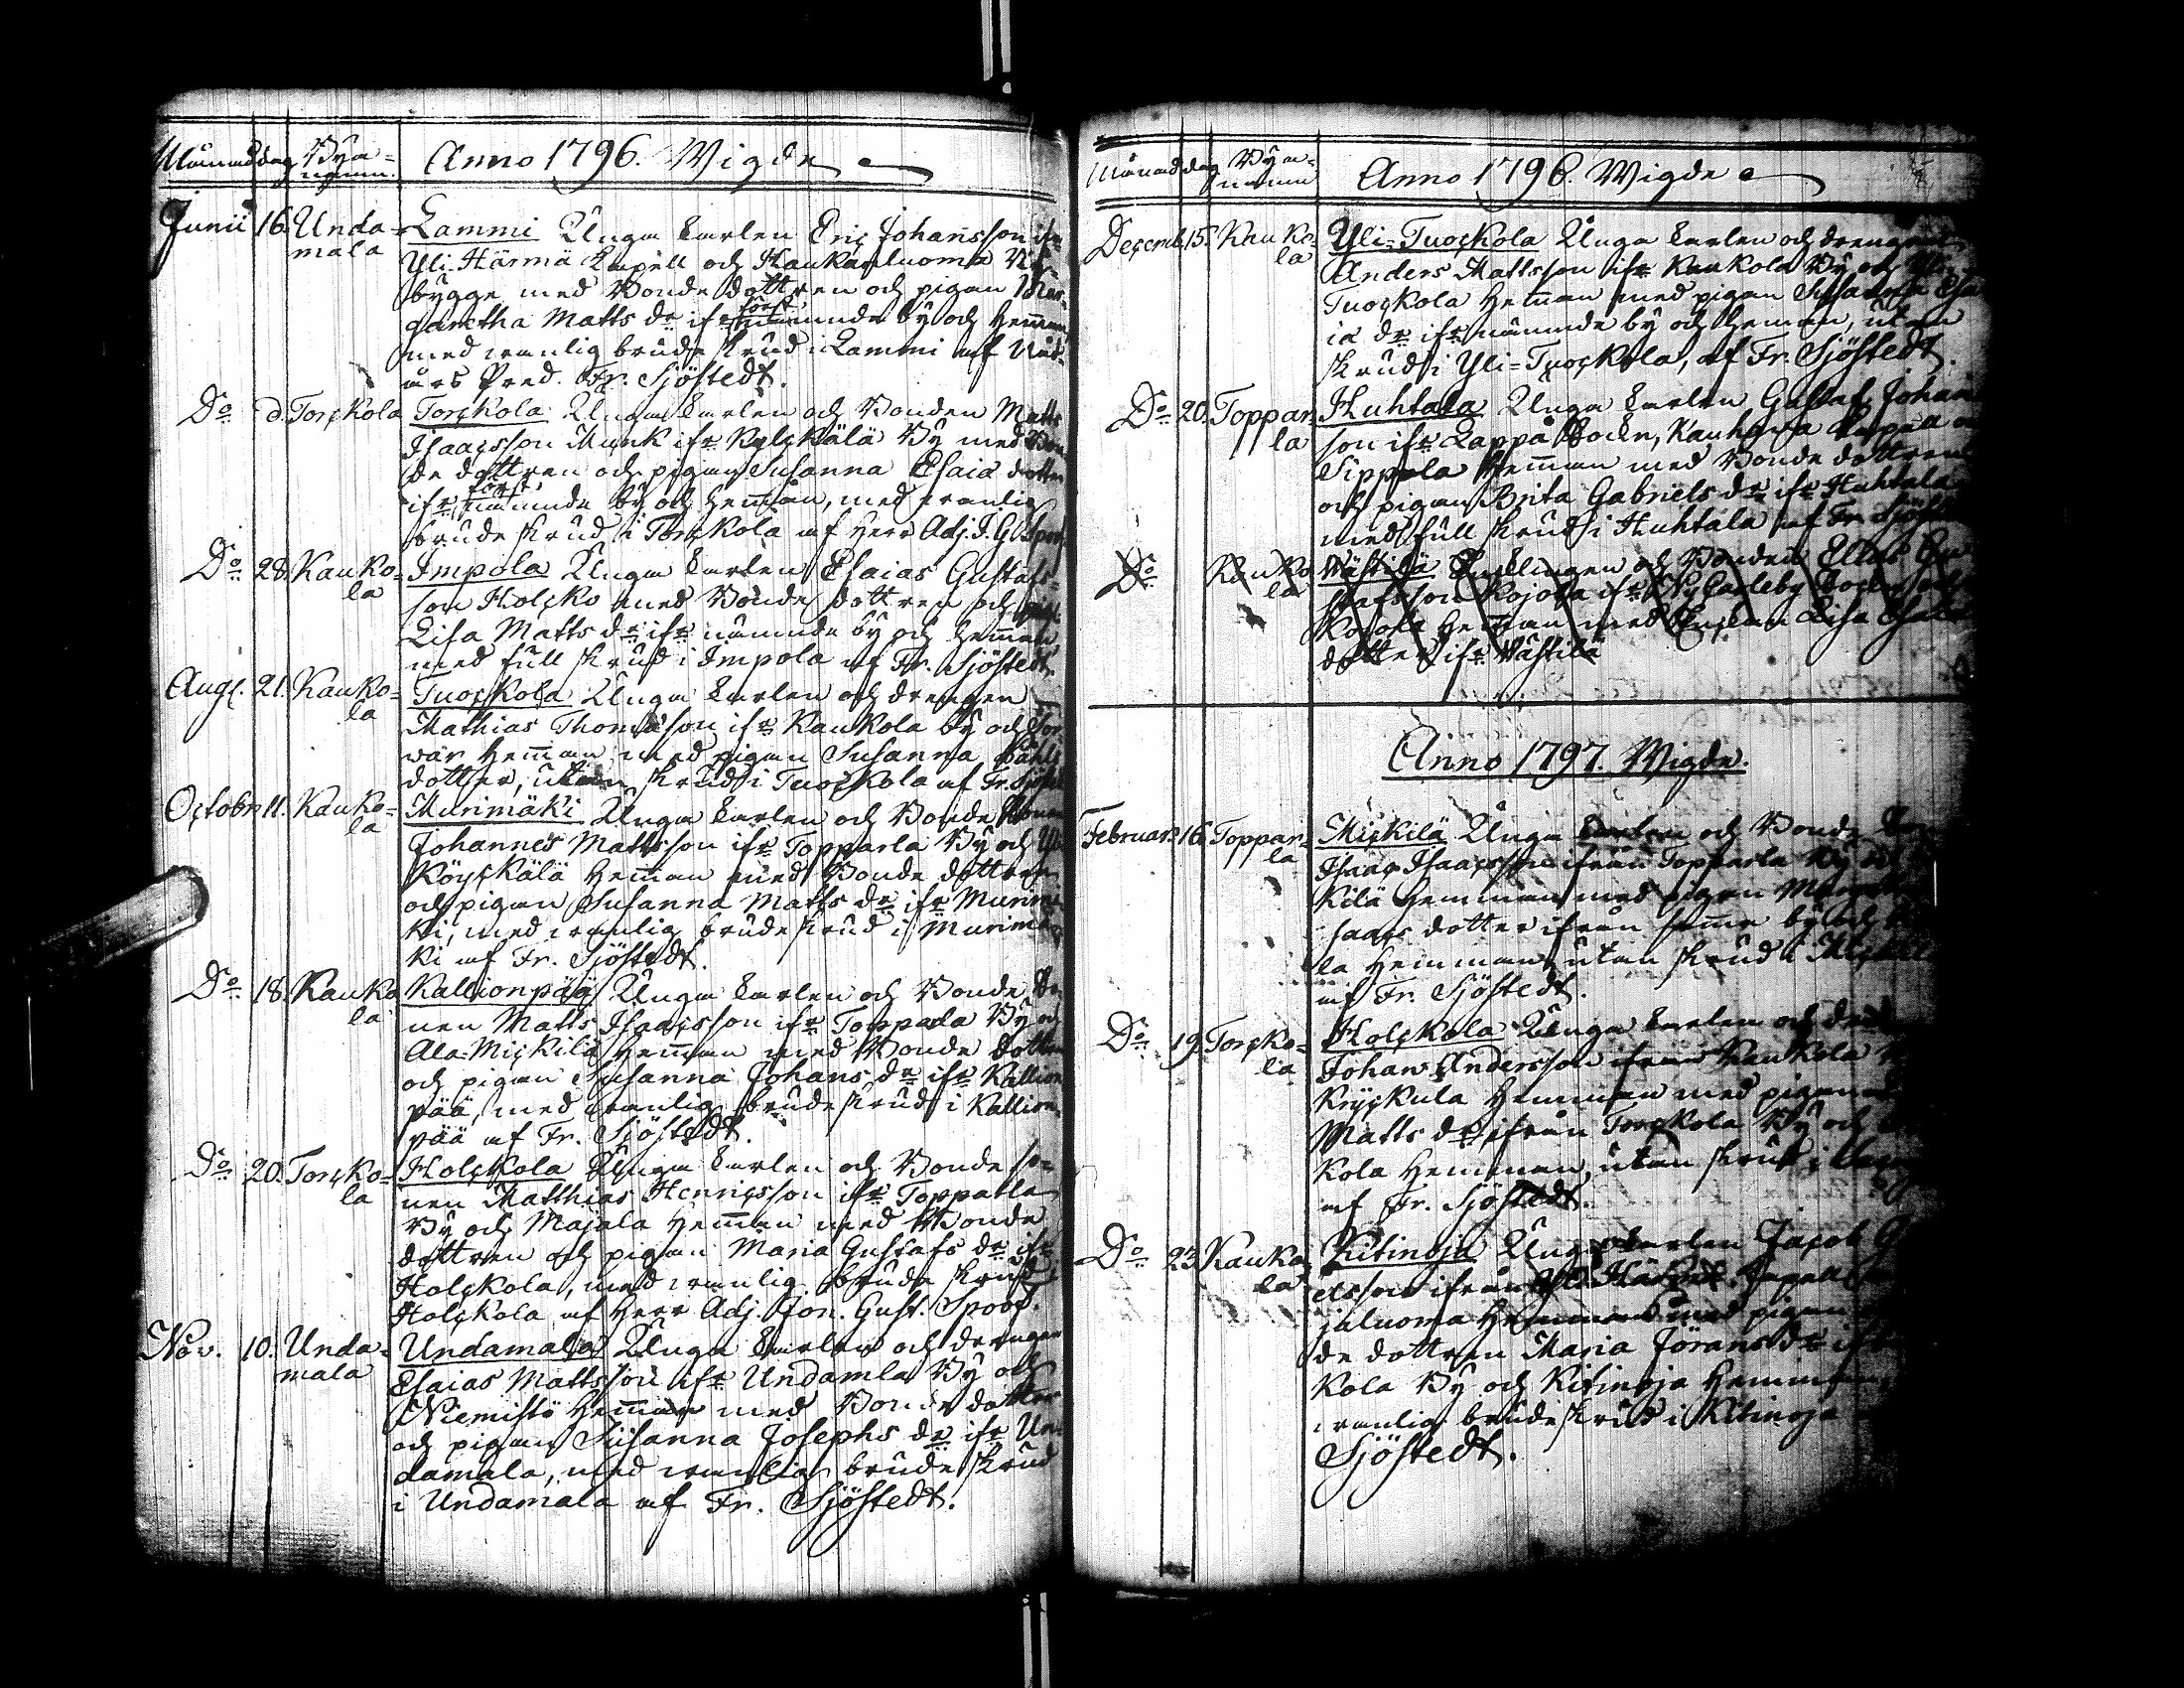 Månad dag Byanamn. Anno 1796. Wigde
Junii 16. Undamala Lammi Unga karlen Eric Johansson ifr
Yli-Härmä Capell och Haukanluoma Ny-
bygge med Bonde dottren och pigan Mar-
garetha Matts dr ifr först nämnde by och Hemman
med wanlig brude skrud i Lammi af Nåd-
års Pred. Fr. Sjöstedt.
Do d. Torckola Torckola Unga karlen och Bonden Matts
Isaacsson Munk ifr Kylckälä By med Bon-
de dottren och pigan Susanna Esaiæ dotter
ifr först nämnde by och Hemman, med wanlig
brude skrud i Torckola af Herr Adj. J. G. Spoof
Do 28. Kaukola Impola Unga karlen Esaias Gustafs-
son Holcko med Bonde dottren och pigan
Lisa Matts dr ifr nämnde by och Hemman
med full skrud i Impola af Fr. Sjöstedt.
Aug. 21. Kaukola Tuockola Unga karlen och drengen
Mathias Thomasson ifr Kaukola by och
wär Hemman med pigan Susanna Påhls
dotter, utan skrud i Tuockola af Fr. Sjöstedt
Octobr 11. Kaukola Murimäki Unga karlen och Bonde Sonen
Johannes Mattsson ifr Topparla By och Yli
Köyckälä Hemman med Bonde dottren
och pigan Susanna Matts dr ifr Murimä-
ki, med wanlig brude skrud i Murimä-
ki af Fr. Sjöstedt.
Do 18. Kaukola Kallionpää Unga karlen och Bonde So-
nen Matts Isaacsson ifr Topparla By och
Ala-Mickilä Hemman med Bonde dottren
och pigan Susanna Johans dr ifr Kallion
pää, med wanlig brude skrud i Kallion
pää af Fr. Sjöstedt.
Do 20. Torckola Holckola Unga karlen och Bonde so-
nen Matthias Henricsson ifr Topparla
By och Majala Hemman med Bonde
dottren och pigan Maria Gustafs dr ifr
Holckola, med wanlig brude skrud i
Holckola af Herr Adj. Jon. Gust. Spoof.
Nov. 10. Undamala Undamala Unga karlen och drengen
Esaias Mattsson ifr Undamla By och
Niemistö Hemman med Bonde dottren
och pigan Susanna Josephs dr ifr Un-
damala, med wanlig brude skrud
i Undamala af Fr. Sjöstedt.
Månad dag Bynamn Anno 1796. Wigde
Decemb. 15. Kaukola Yli-Tuockola Unga karlen och drengen
Anders Mattsson ifr Kaukola By och Yli-
Tuockola Hemman med pigan Susanna Esa
iæ dr ifr nämnde by och Hemman, utan
skrud i Yli-Tuockola, af Fr. Sjöstedt.
Do 20. Topparla Huhtala Unga karlen Gustaf Johans
son ifr Lappå Sockn, Kauhava Capell och
Sippola Hemman med Bonde dottren
och pigan Brita Gabriels dr ifr Huhtala
med full skrud i Huhtala af Fr. Sjöstedt
Do Kaukola Wästilä Enklingen och Bonden Elias Gu
stafsson Kojola ifr NyCarleby Sockn och
Kojola Hemman med Enckan Lisa Esaiæ
dotter ifr Wästilä
Anno 1797. Wigde.
Februar. 16. Topparla Mickilä Unga karlen och Bonde
Isaac Isaacsson ifrån Topparla By och
kilä Hemman med pigan
saacs dotter ifrån samma by och
la Hemman, utan skrud i Mickilä
af Fr. Sjöstedt.
Do 19. Torckola Holckola Unga karlen och
Johan Andersson ifrån Kaukola
Kryckula Hemman med pigan
Matts dr ifrån Torckola By och
kola Hemman, utan skrud i
af Fr. Sjöstedt.
Do 23. Kaukola Kitinoja Unga karlen Jacob
elsson ifrån Härmä Capell
jaluoma Hemman med pigan
de dottren Maria Jörans dr ifr
kola By och Kitinoja Hemman
wanlig brudeskrud i Kitinoja
Sjöstedt.